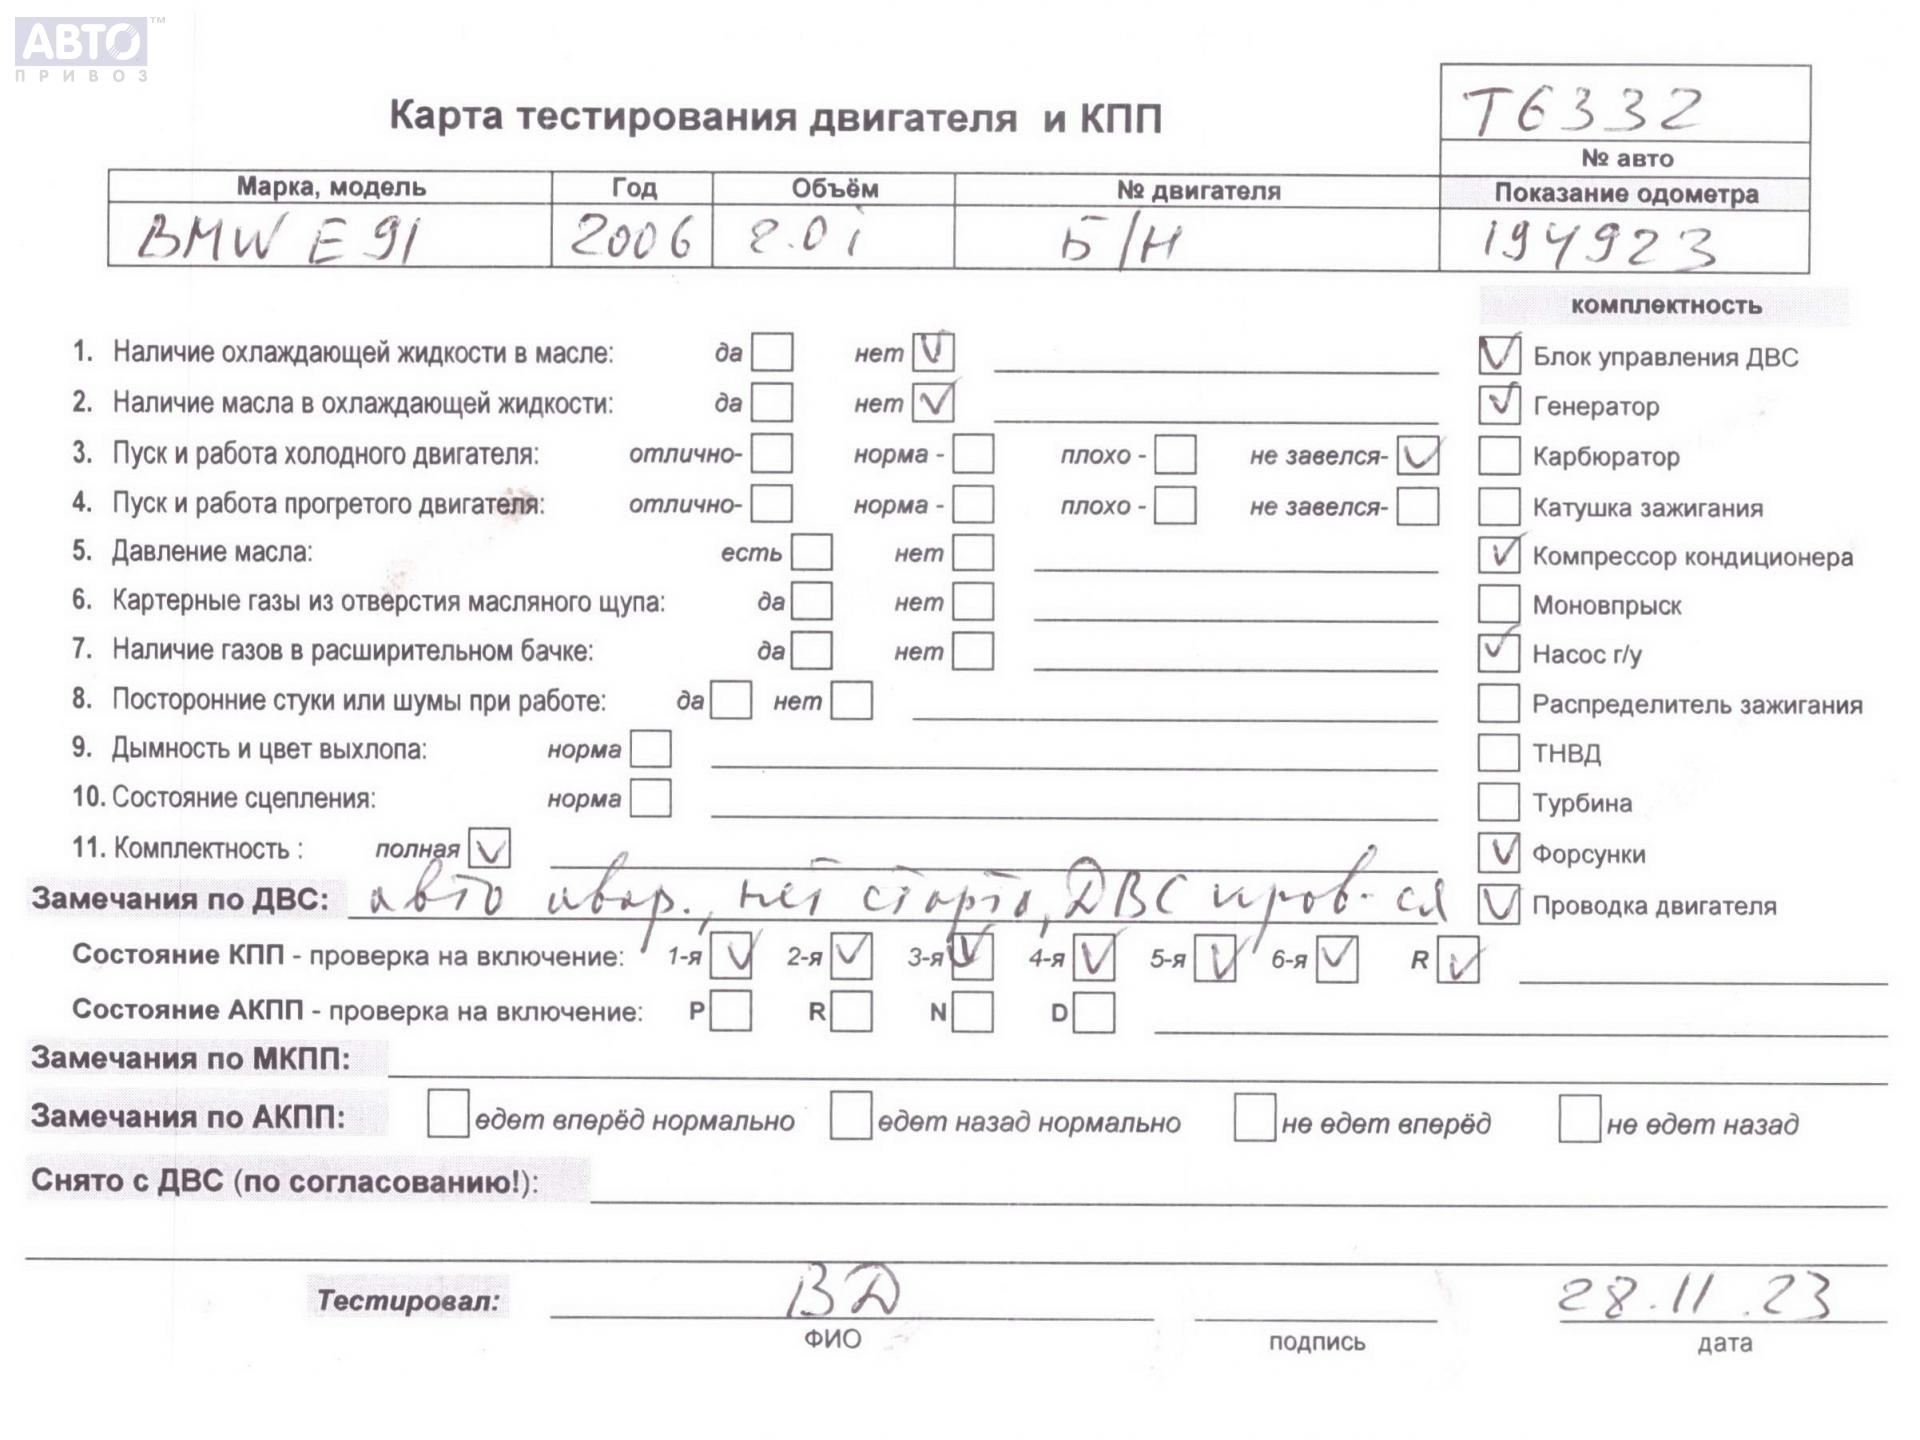 АВТО™
ПРИВОЗ
Карта тестирования двигателя и КПП
Т6332
№ авто
Марка, модель Год Объём № двигателя Показание одометра
BMW E91 2006 2.0i Б/Н 194923
комплектность
1. Наличие охлаждающей жидкости в масле: да нет Блок управления ДВС
2. Наличие масла в охлаждающей жидкости: да нет Генератор
3. Пуск и работа холодного двигателя: отлично- норма - плохо - не завелся- Карбюратор
4. Пуск и работа прогретого двигателя: отлично- норма - плохо - не завелся- Катушка зажигания
5. Давление масла: есть нет Компрессор кондиционера
6. Картерные газы из отверстия масляного щупа: да нет Моновпрыск
7. Наличие газов в расширительном бачке: да нет Насос г/у
8. Посторонние стуки или шумы при работе: да нет Распределитель зажигания
9. Дымность и цвет выхлопа: норма ТНВД
10. Состояние сцепления: норма Турбина
11. Комплектность : полная Форсунки
Замечания по ДВС: авто авар., нет старта, ДВС пров-ся Проводка двигателя
Состояние КПП - проверка на включение: 1-я 2-я 3-я 4-я 5-я 6-я R
Состояние АКПП - проверка на включение: P R N D
Замечания по МКПП:
Замечания по АКПП: едет вперёд нормально едет назад нормально не едет вперёд не едет назад
Снято с ДВС (по согласованию!):
Тестировал: ВД 28.11.23
ФИО подпись дата